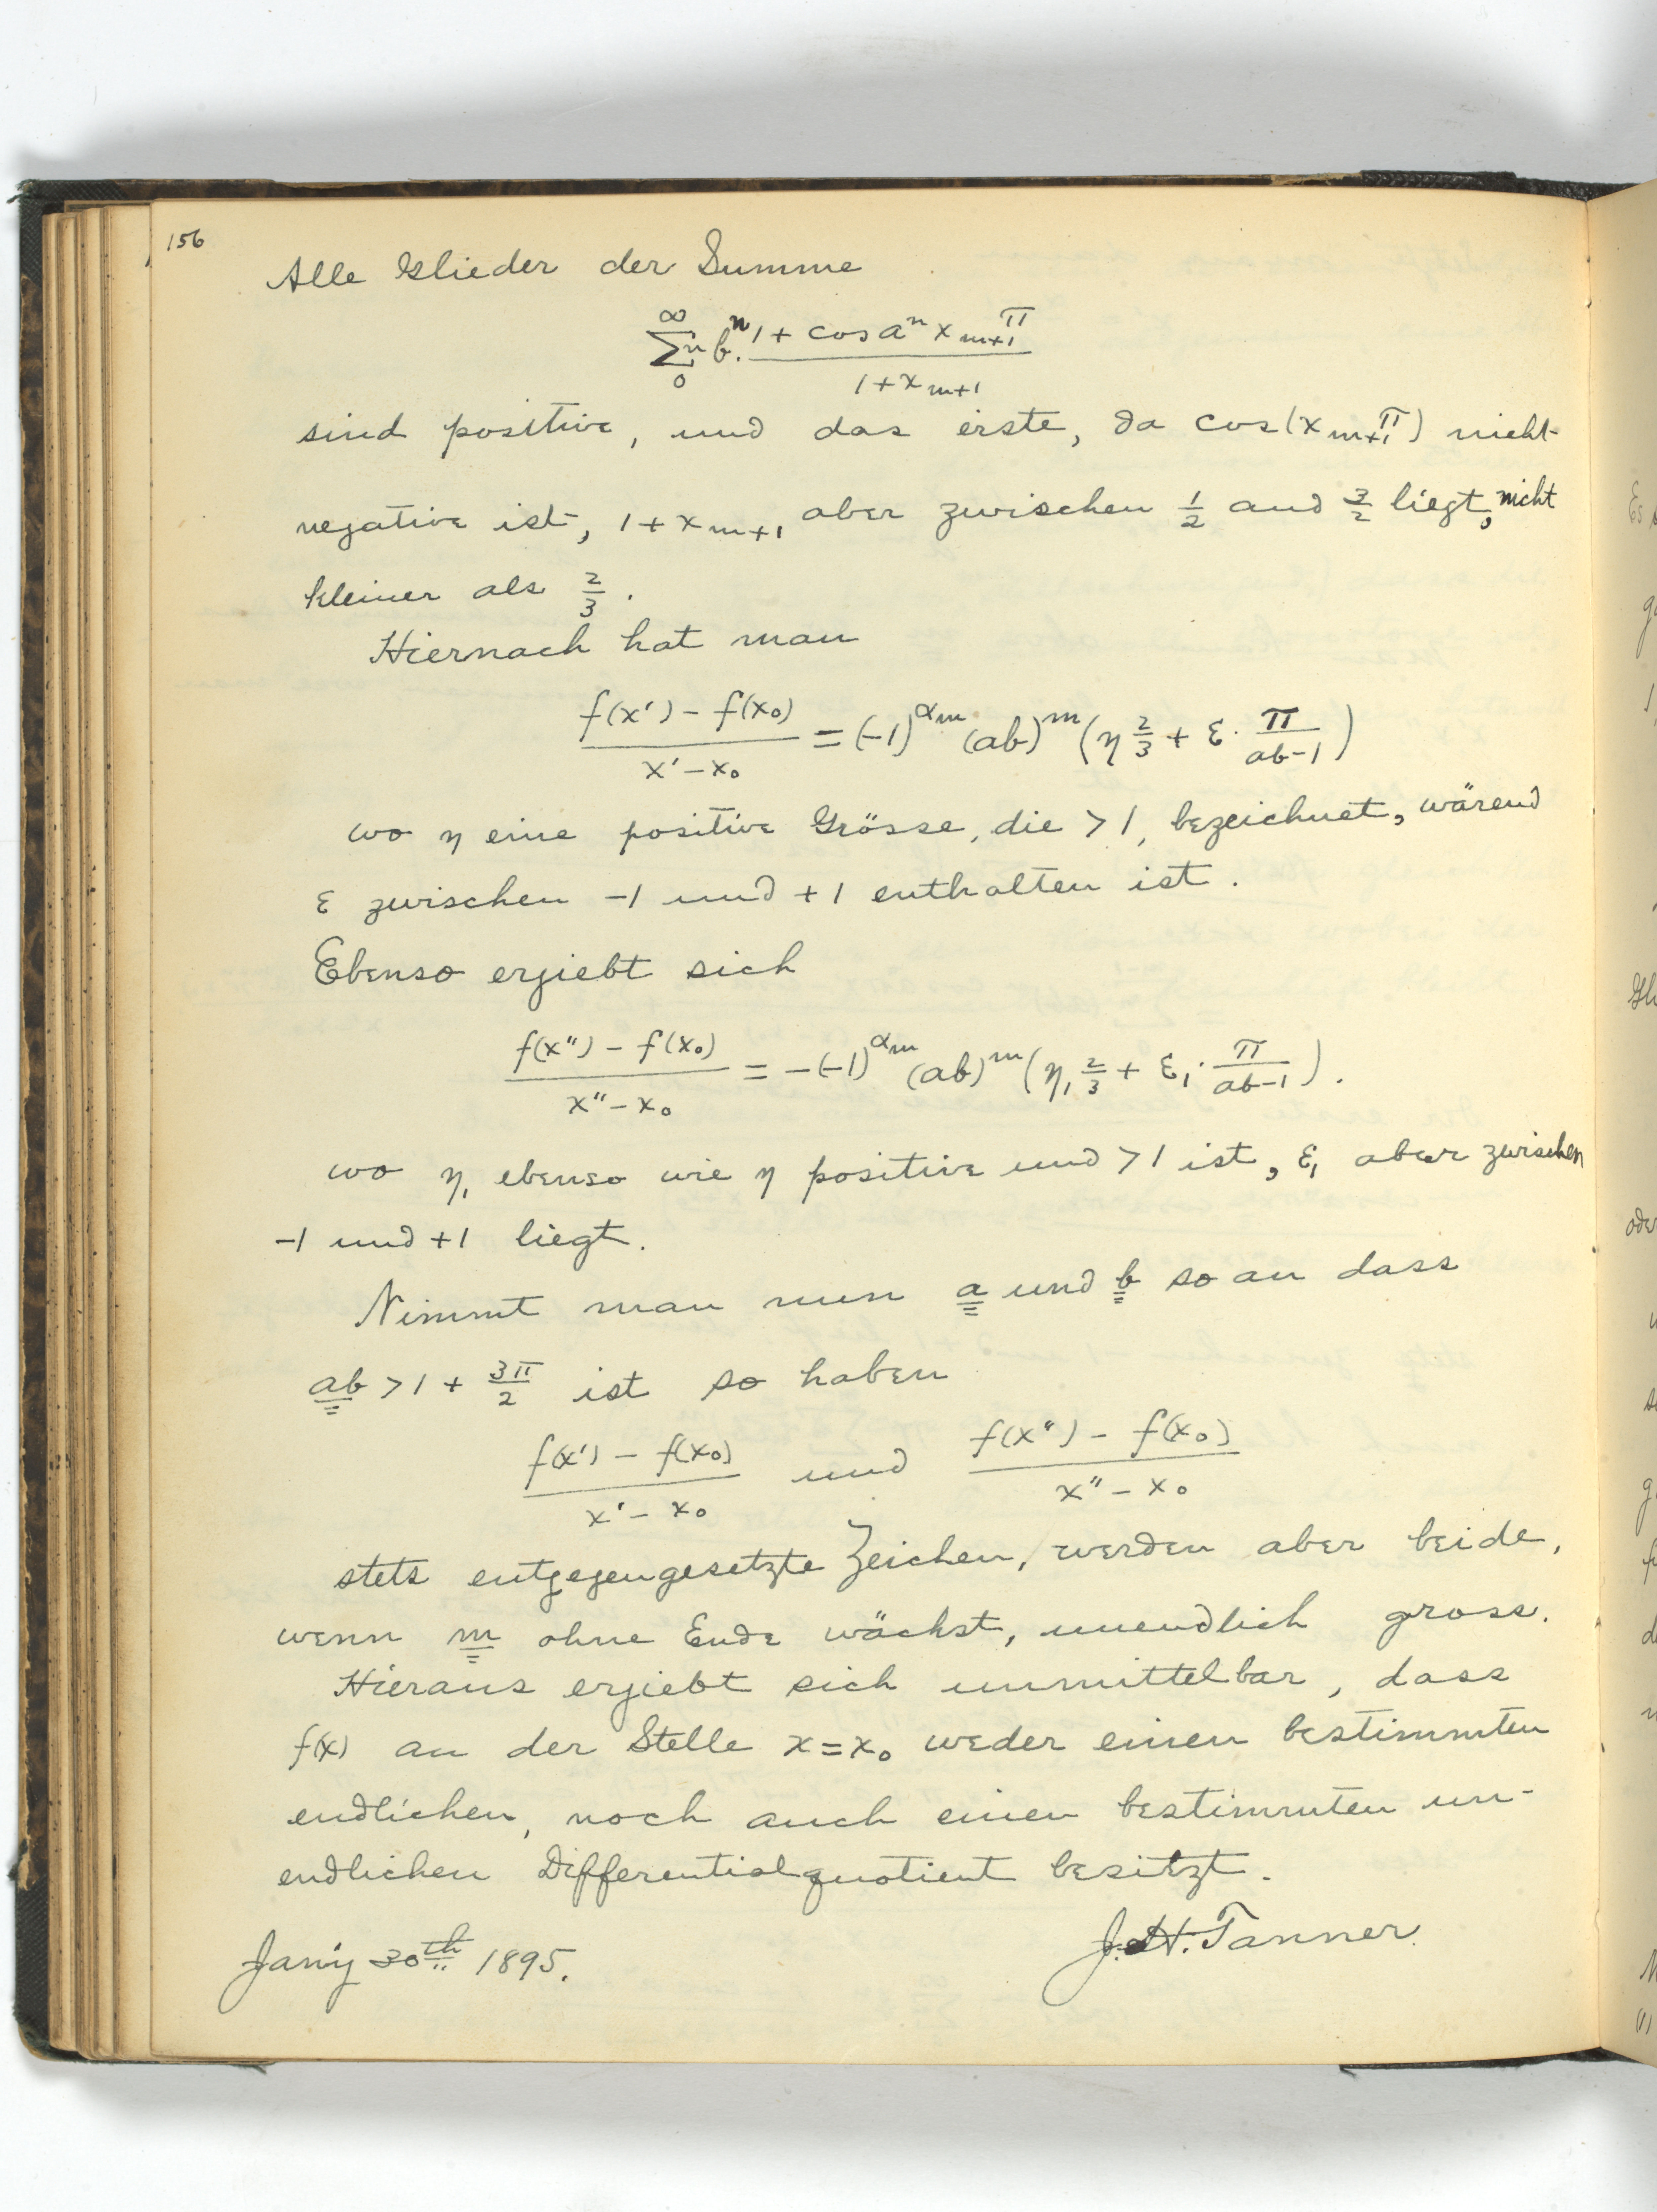 156
Alle Glieder der Summe
∞ ∑ n 0 bⁿ. (1 + cos aⁿ x_{m+1} π) / (1 + x_{m+1})
sind positive, und das erste, da cos(x_{m+1} π) nicht
negative ist, 1 + x_{m+1} aber zwischen 1/2 and 3/2 liegt, nicht
kleiner als 2/3.
Hiernach hat man
(f(x′) − f(x₀)) / (x′ − x₀) = (−1)^{α_m} (ab)^m (η 2/3 + ε · π/(ab−1))
wo η eine positive Grösse, die > 1, bezeichnet, wärend
ε zwischen −1 und +1 enthalten ist.
Ebenso ergiebt sich
(f(x″) − f(x₀)) / (x″ − x₀) = −(−1)^{α_m} (ab)^m (η₁ 2/3 + ε₁ · π/(ab−1)).
wo η₁ ebenso wie η positive und > 1 ist, ε₁ aber zwischen
−1 und +1 liegt.
Nimmt man nun a und b so an dass
ab > 1 + 3π/2 ist so haben
(f(x′) − f(x₀)) / (x′ − x₀) und (f(x″) − f(x₀)) / (x″ − x₀)
stets entgegengesetzte Zeichen, werden aber beide,
wenn m ohne Ende wächst, unendlich gross.
Hieraus ergiebt sich unmittelbar, dass
f(x) an der Stelle x = x₀ weder einen bestimmten
endlichen, noch auch einen bestimmten un-
endlichen Differentialquotient besitzt.
J. H. Tanner.
Jan'y 30th 1895.